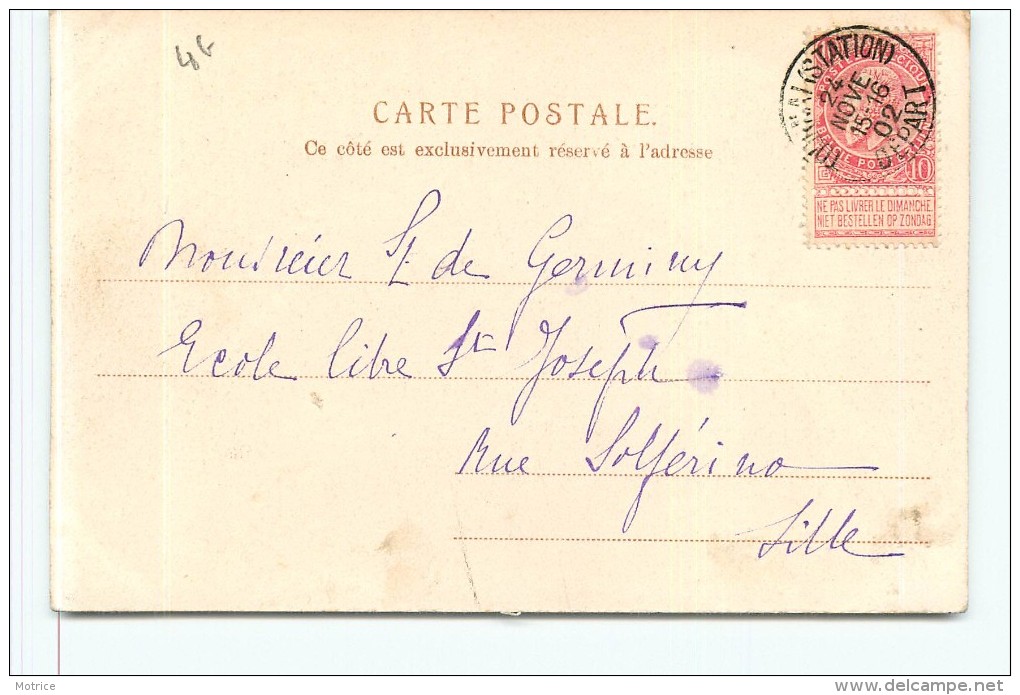 4G
CARTE POSTALE.
Ce côté est exclusivement réservé à l'adresse
TOURNAI (STATION)
24
NOVE
15-16
02
DEPART
10
NE PAS LIVRER LE DIMANCHE
NIET BESTELLEN OP ZONDAG
de Germiny
Ecole libre St Joseph
Rue Solférino
Lille
Motrice
www.delcampe.net